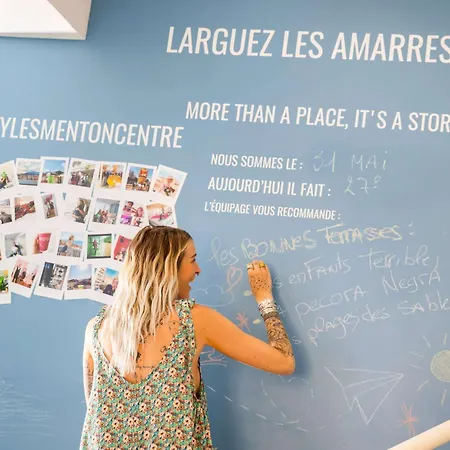 LARGUEZ LES AMARRES
MORE THAN A PLACE, IT'S A STOR
YLESMENTONCENTRE
NOUS SOMMES LE : 31 MAI
AUJOURD'HUI IL FAIT : 27°
L'ÉQUIPAGE VOUS RECOMMANDE :
les BONNES TERRASSES :
enfants Terrible,
pecora Negra
plages des Sable